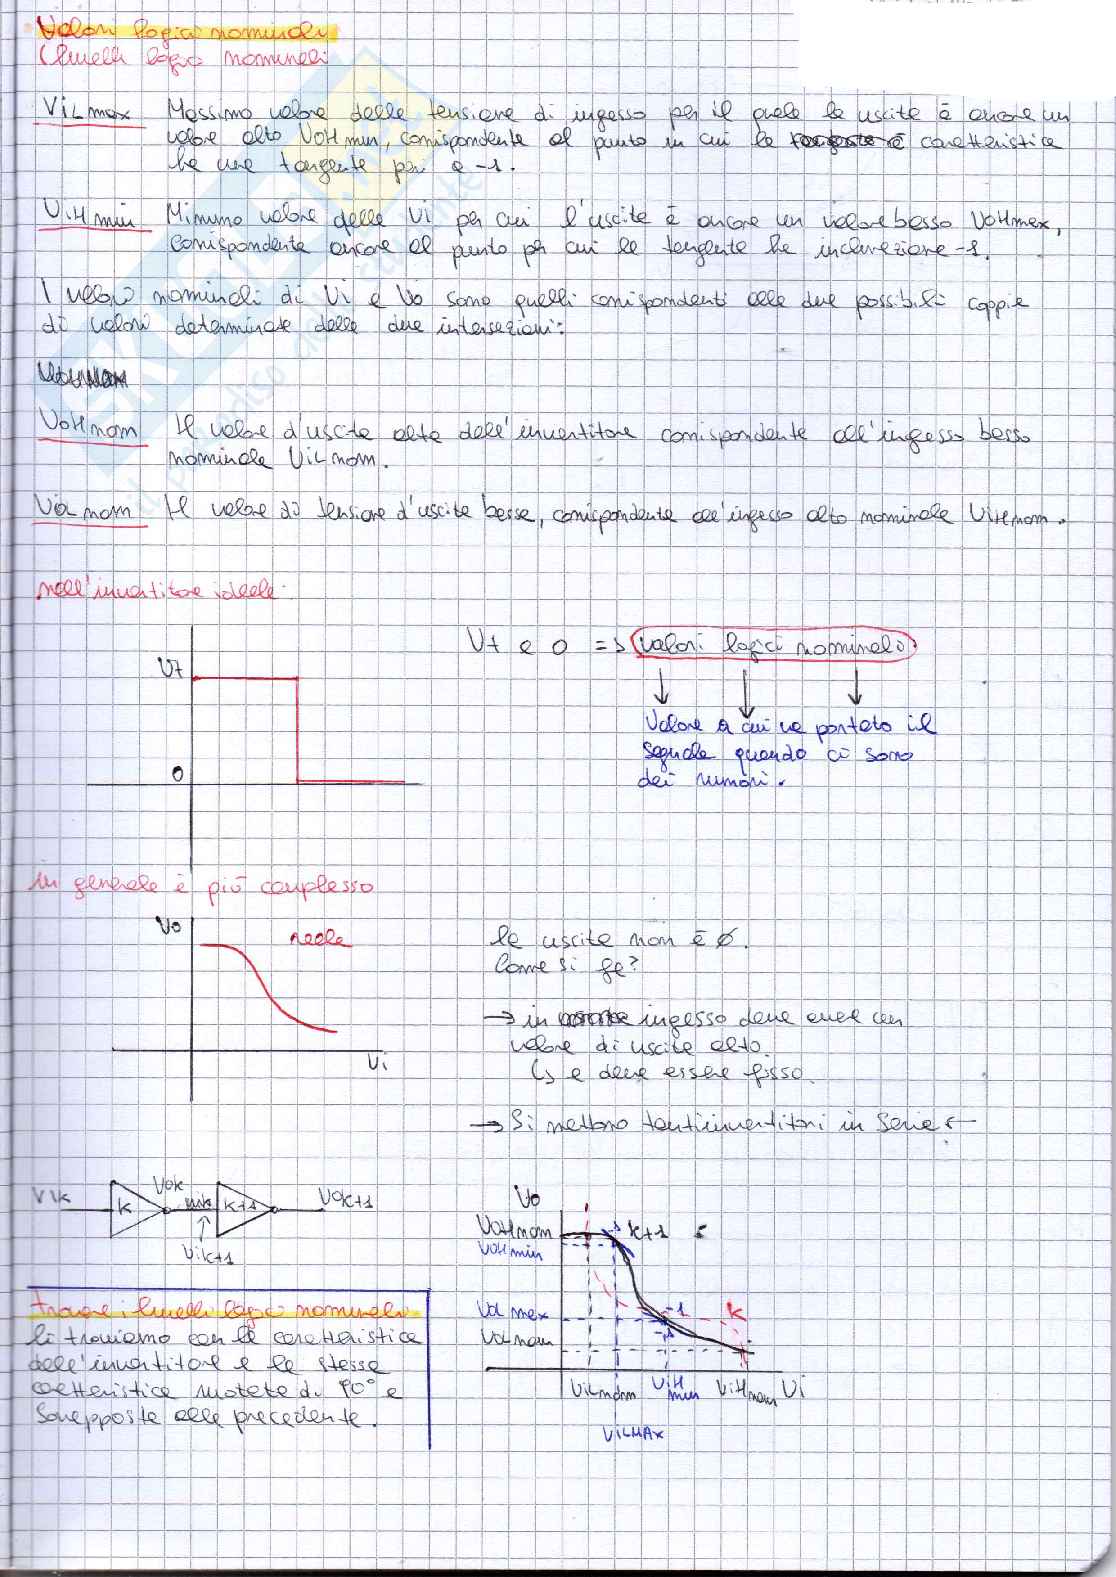 Valori logici nominali
(livelli logici nominali
ViLmax Massimo valore della tensione di ingesso per il quale la uscita è ancora un
valore alto VOHmin, corrispondente al punto in cui la caratteristica
ha una tangente pari a -1.
ViHmin Minimo valore della Vi per cui l'uscita è ancora un valore basso VOHmax,
corrispondente ancora al punto per cui la tangente ha inclinazione -1.
I valori nominali di Vi e Vo sono quelli corrispondenti alle due possibili coppie
di valori determinate dalle due intersezioni:
VOHnom Il valore d'uscita alta dell'invertitore corrispondente all'ingesso basso
nominale ViLnom.
VOLnom Il valore di tensione d'uscita bassa, corrispondente all'ingesso alto nominale ViHnom.
nell'invertitore ideale:
V+ e 0 => valori logici nominali
V+
Valore a cui va portato il
segnale quando ci sono
dei rumori.
0
in generale è più complesso
Vo
reale
la uscita non è Ø.
Come si fa?
→ in ingesso deve aver un
valore di uscita alto.
↳ e deve essere fisso.
Vi
→ Si mettono tanti invertitori in serie ←
Vik
k
Vok
k+1
Vok+1
Vik+1
Vo
VOHnom
VOHmin
VOLmax
VOLnom
-1
k+1
-1
k
ViLnom
ViHmin
ViHnom
Vi
ViLMAX
trovare i livelli logici nominali
li troviamo con la caratteristica
dell'invertitore e la stessa
caratteristica ruotata di 90° e
sovrapposta alla precedente.
SKUOLA.net
il paradiso dello studente